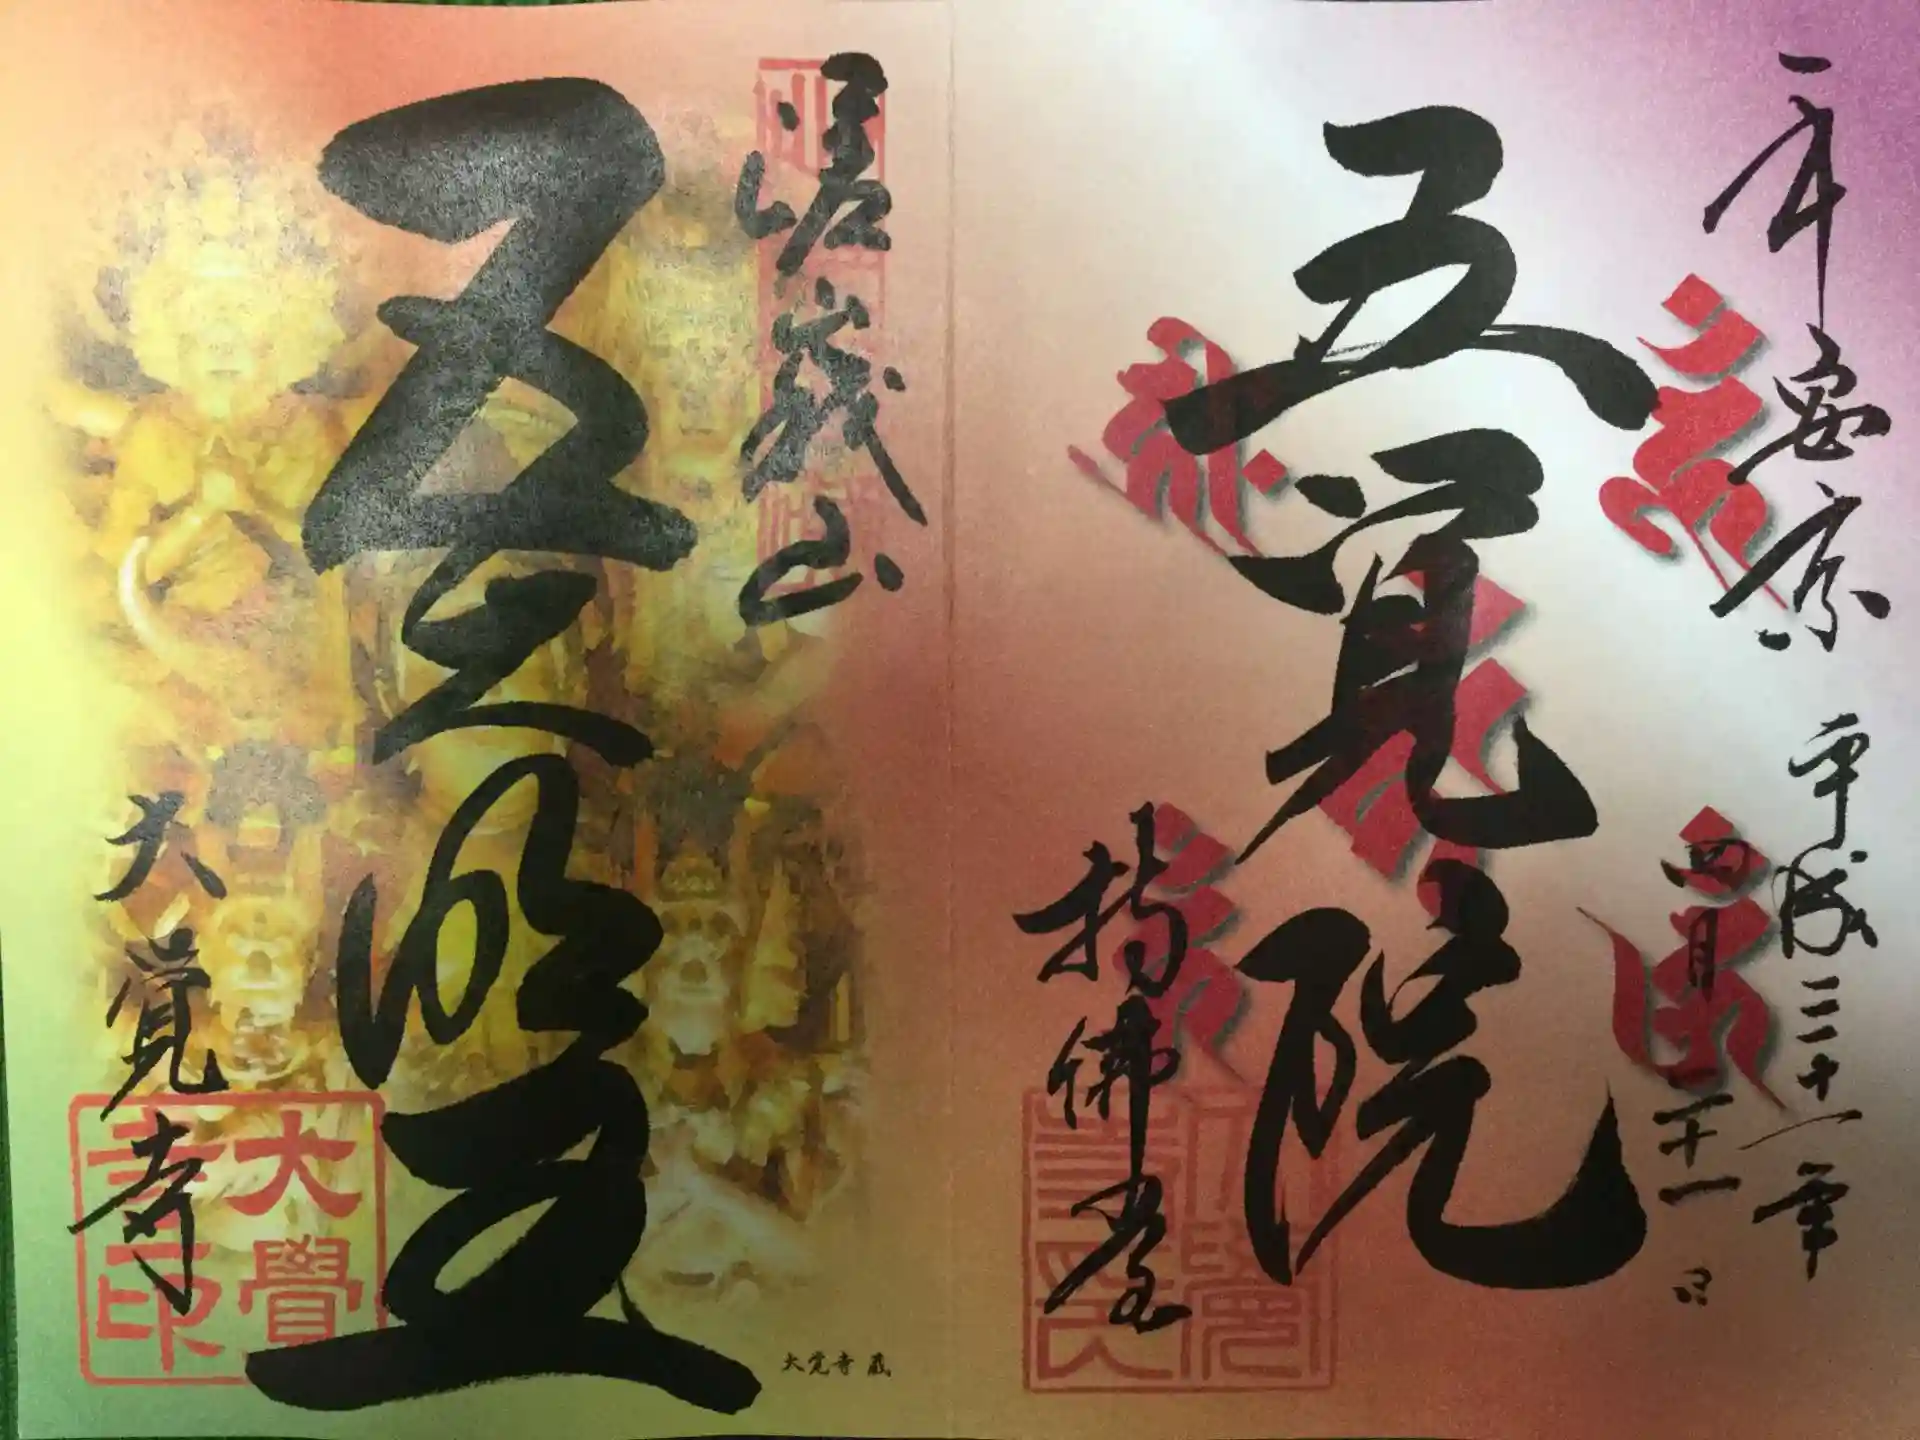 平安京
平成三十一年
四月二十一日
五覚院
持佛堂
嵯峨山
五大明王
大覚寺
大覺
寺印
大覚寺 蔵